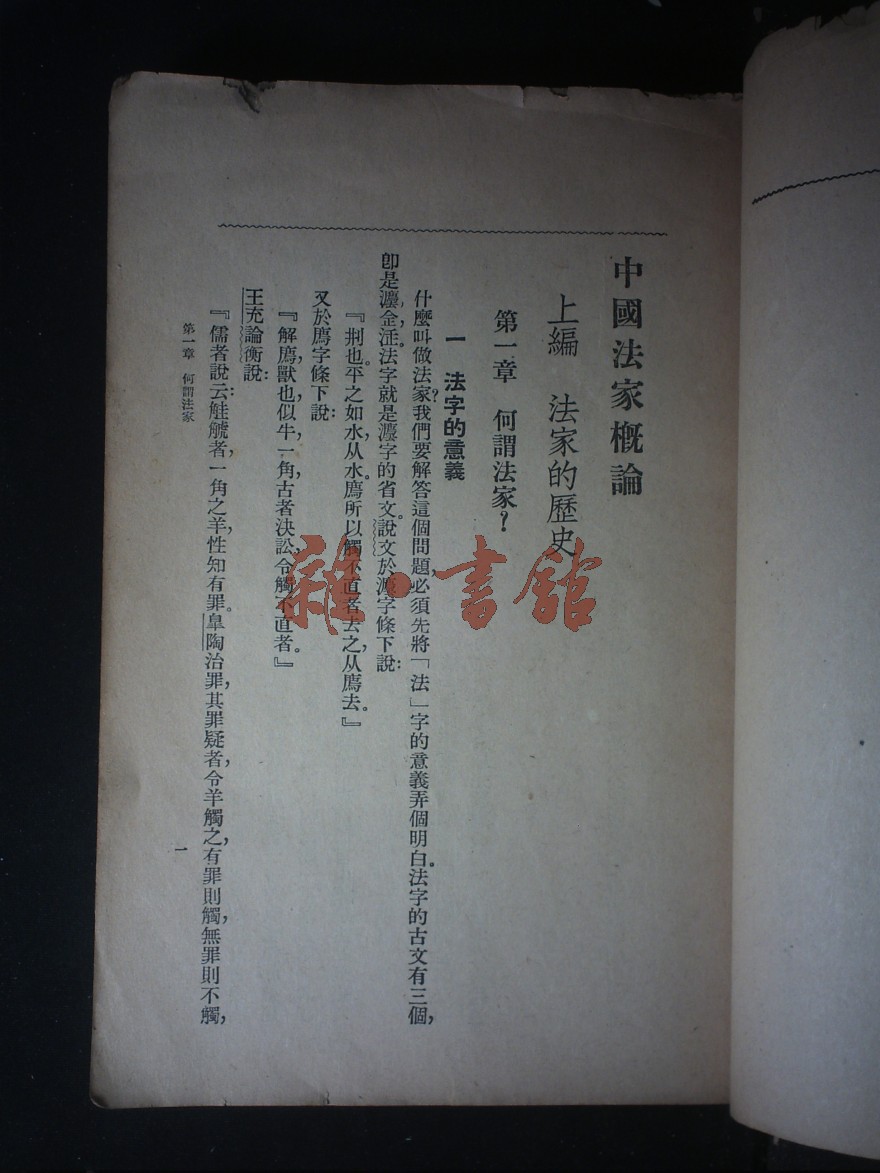 中國法家概論
上編　法家的歷史
第一章　何謂法家？
一　法字的意義
什麼叫做法家？我們要解答這個問題，必須先將「法」字的意義弄個明白。法字的古文有三個，
卽是灋、金、㳒。法字就是灋字的省文。說文於灋字條下說：
『刑也。平之如水，从水。廌所以觸不直者去之，从廌去。』
又於廌字條下說：
『解廌，獸也，似牛，一角。古者決訟，令觸不直者。』
王充論衡說：
『儒者說云：觟𧣾者，一角之羊，性知有罪。皐陶治罪，其罪疑者，令羊觸之，有罪則觸，無罪則不觸，
第一章　何謂法家
一
雜·書館